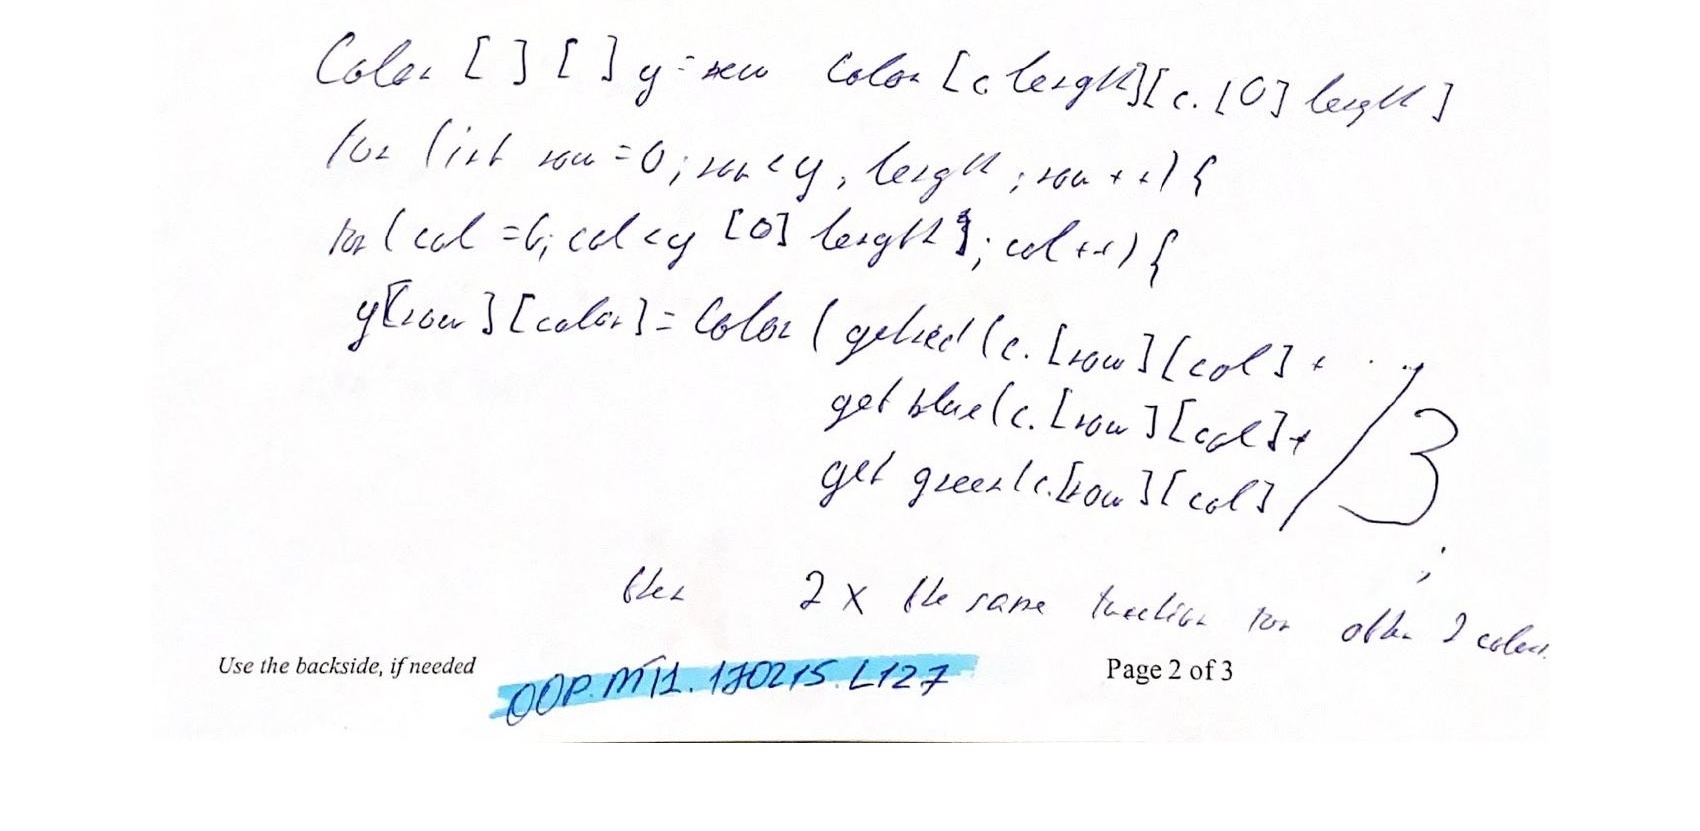 Color [ ] [ ] y = new Color [c length][c. [0] length]
for (int row = 0; row < y, length; row ++) {
for (col = 0; col < y [0] length; col ++) {
y[row][color] = Color (getred (c. [row][col] +
get blue (c. [row][col] +
get green (c. [row][col] / 3
;
then 2 x the same function for other 2 colors.
Use the backside, if needed
OOP.MT1.170215.L127
Page 2 of 3